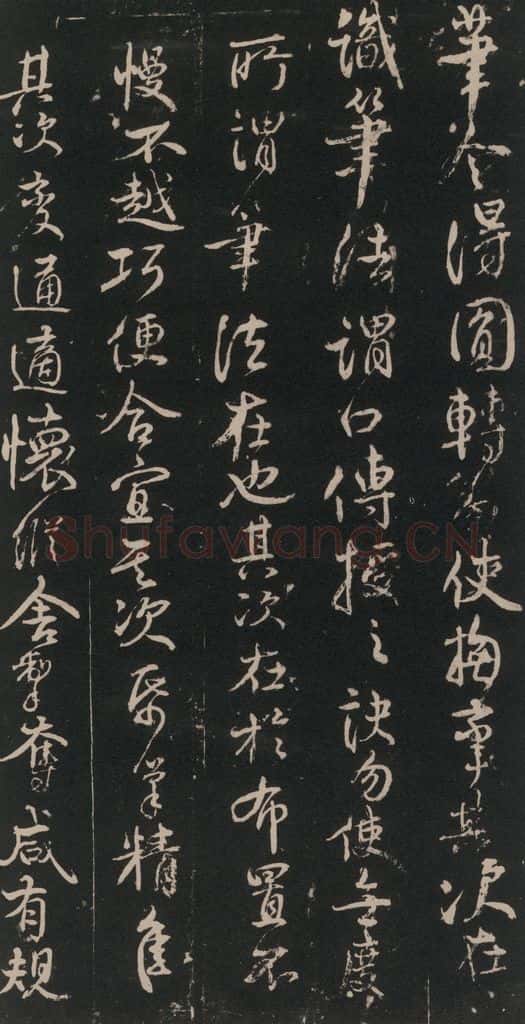 筆令得圓轉勿使拘攣其次在
識筆法謂口傳授之訣勿使無度
所謂筆法在也其次在於布置不
慢不越巧便合宜其次帋筆精佳
其次變通適懷縱舍掣奪咸有規
Shufawang.CN